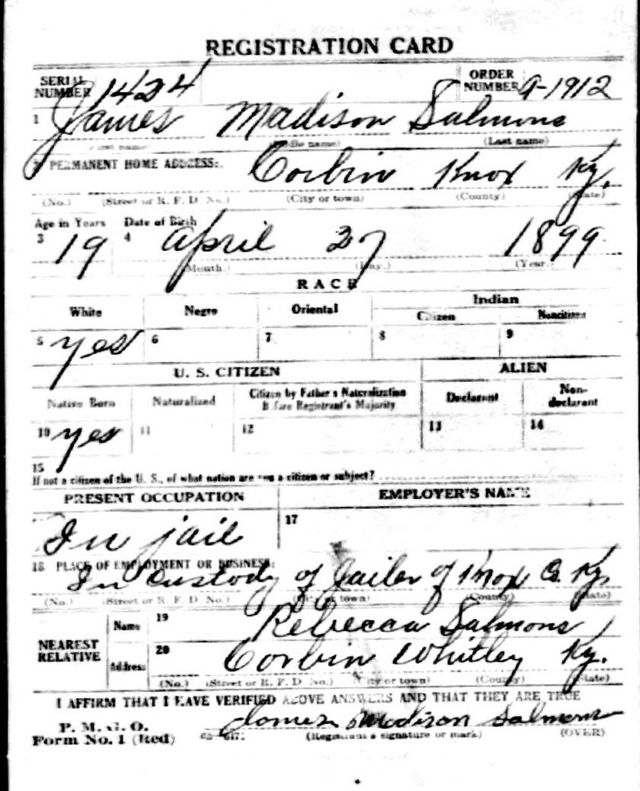 REGISTRATION CARD
SERIAL NUMBER 1424 ORDER NUMBER A-1912
1 James Madison Salmons
(First name) (Middle name) (Last name)
2 PERMANENT HOME ADDRESS: Corbin Knox Ky.
(No.) (Street or R. F. D. No.) (City or town) (County) (State)
Age in Years Date of Birth
3 19 4 April 27 1899
(Month.) (Day.) (Year.)
RACE
White Negro Oriental Indian
Citizen Noncitizen
5 yes 6 7 8 9
U. S. CITIZEN ALIEN
Native Born Naturalized Citizen by Father's Naturalization Before Registrant's Majority Declarant Non-declarant
10 yes 11 12 13 14
15
If not a citizen of the U. S., of what nation are you a citizen or subject?
PRESENT OCCUPATION EMPLOYER'S NAME
In jail 17
18 PLACE OF EMPLOYMENT OR BUSINESS:
In Custody of Jailer of Knox Co. Ky.
(No.) (Street or R. F. D. No.) (City or town) (County) (State)
NEAREST RELATIVE Name 19 Rebecca Salmons
Address 20 Corbin Whitley Ky.
(No.) (Street or R. F. D. No.) (City or town) (County) (State)
I AFFIRM THAT I HAVE VERIFIED ABOVE ANSWERS AND THAT THEY ARE TRUE
P. M. G. O.
Form No. 1 (Red) James Madison Salmons
(Registrant's signature or mark) (OVER)